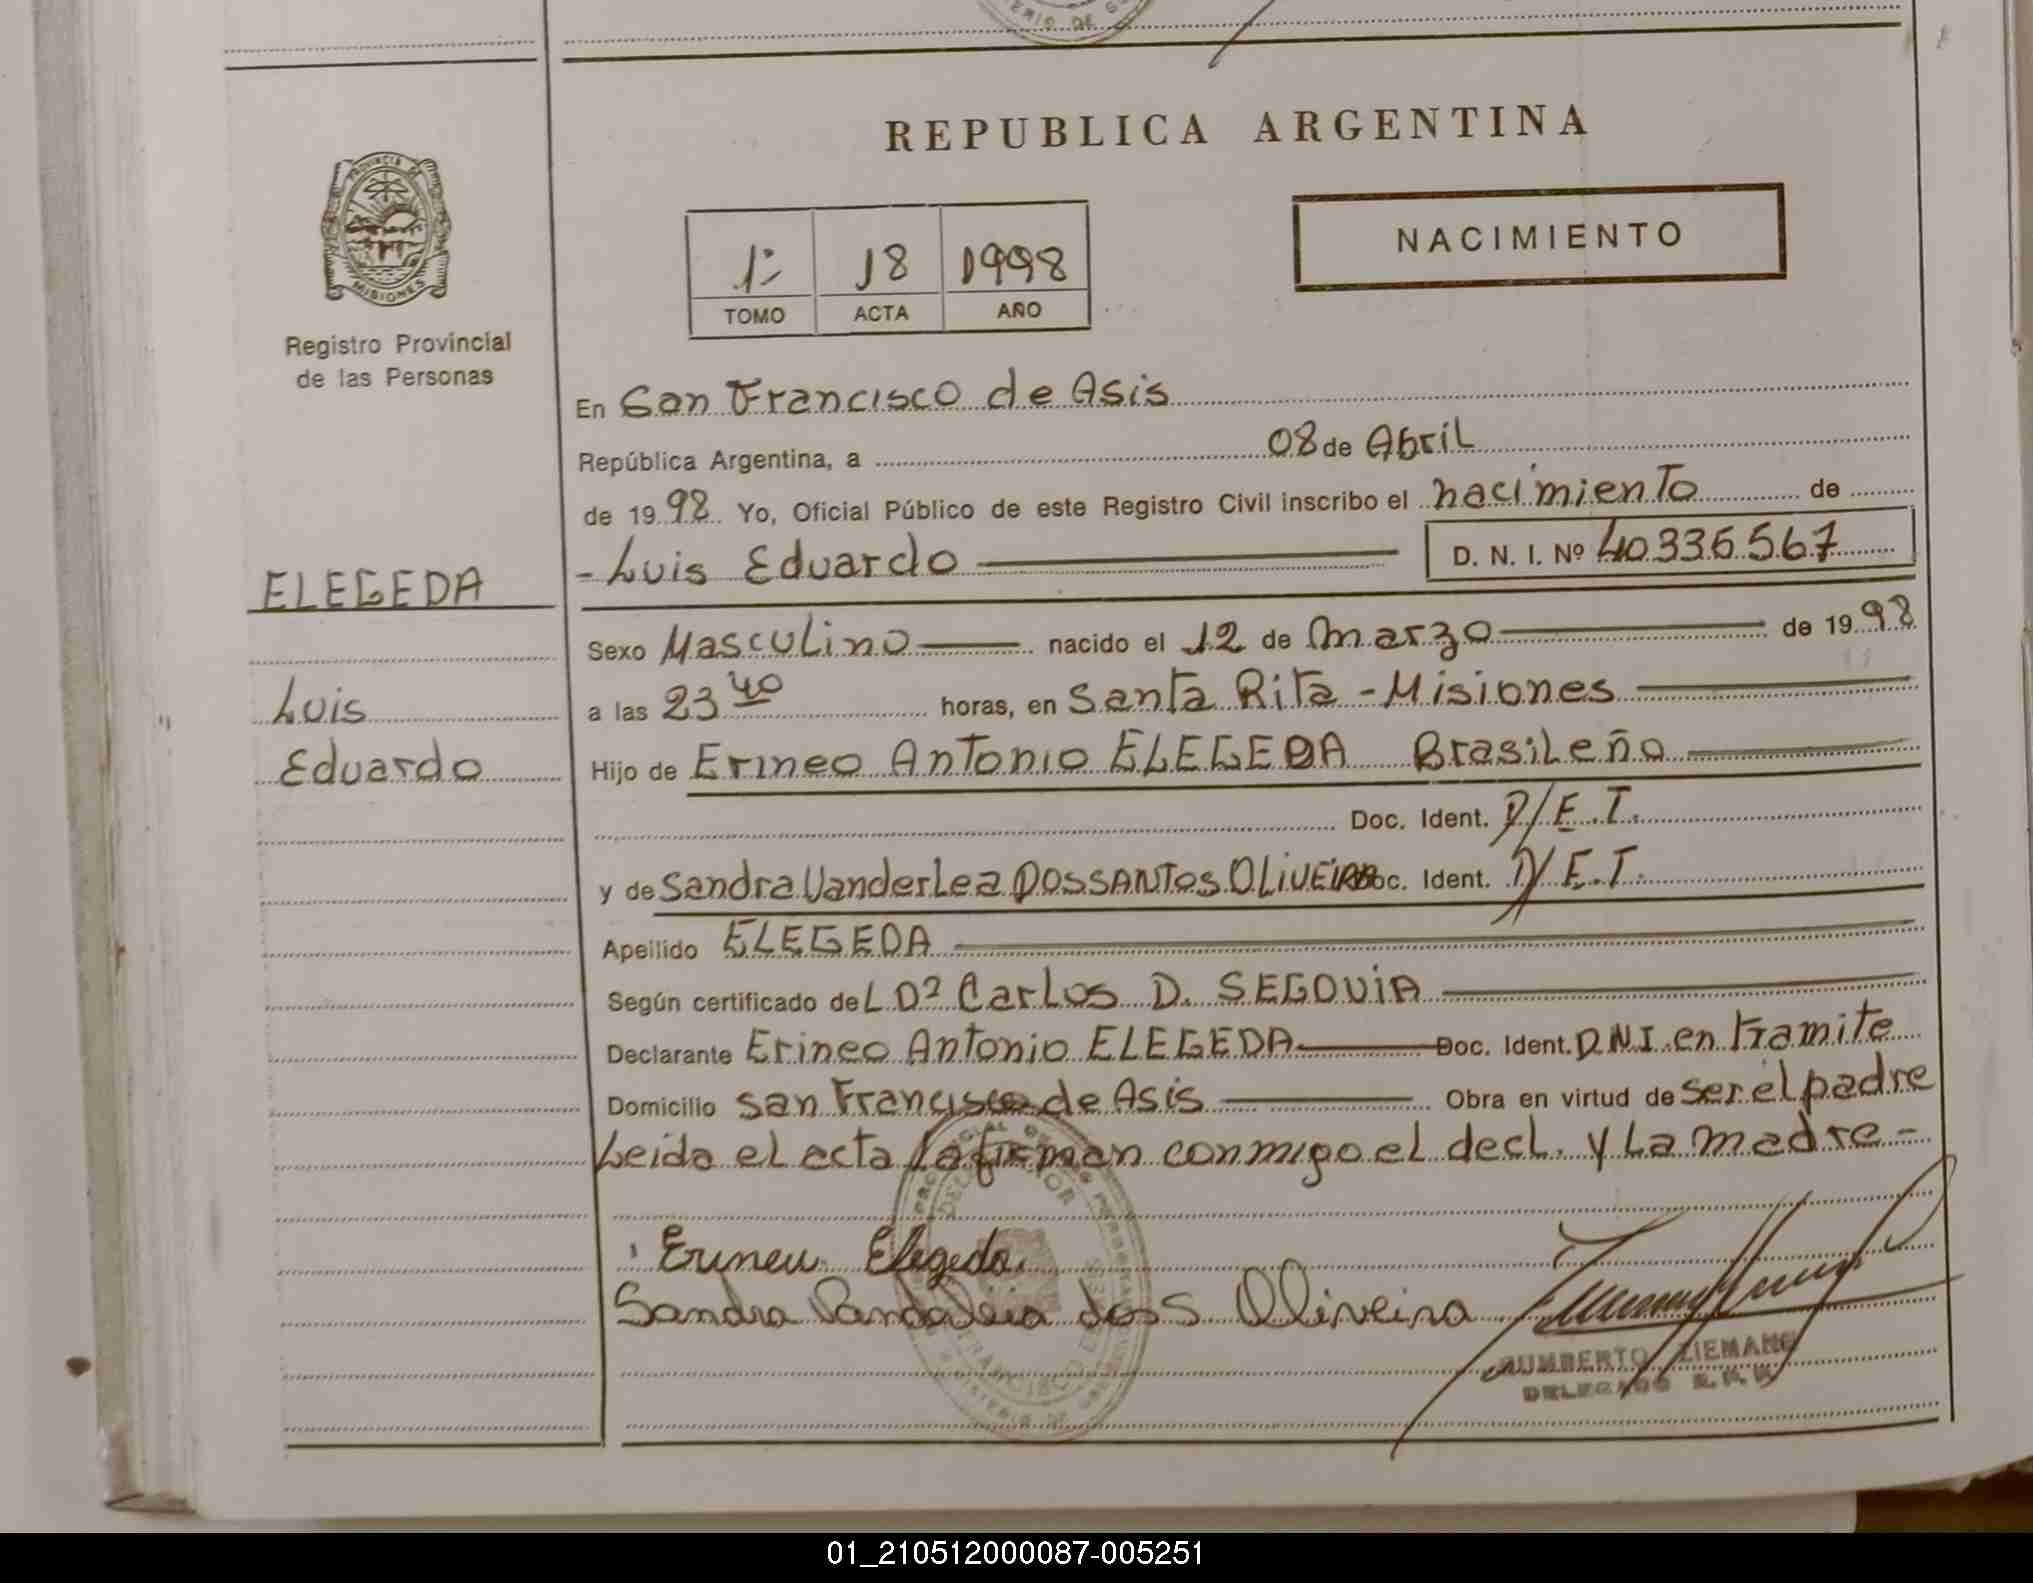 REPUBLICA ARGENTINA
PROVINCIA DE
MISIONES
Registro Provincial
de las Personas
1º 18 1998
TOMO ACTA AÑO
NACIMIENTO
En San Francisco de Asis
República Argentina, a 08 de Abril
de 1998 Yo, Oficial Público de este Registro Civil inscribo el nacimiento de
- Luis Eduardo D. N. I. Nº 40336567
ELEGEDA
Luis
Eduardo
Sexo Masculino nacido el 12 de Marzo de 1998
a las 23 40 horas, en Santa Rita - Misiones
Hijo de Erineo Antonio ELEGEDA Brasileño
Doc. Ident. D/E.T.
y de Sandra Vanderlea DOSSANTOS OLIVEIRA Doc. Ident. D/E.T.
Apellido ELEGEDA
Según certificado del Dr Carlos D. SEGOVIA
Declarante Erineo Antonio ELEGEDA Doc. Ident. DNI en tramite
Domicilio san Francisco de Asis Obra en virtud de ser el padre
Leida el acta la firman conmigo el decl. y La madre -
Erineu Elegeda
Sandra dos S. Oliveira
HUMBERTO ZIEMANN
DELEGADO
01_210512000087-005251